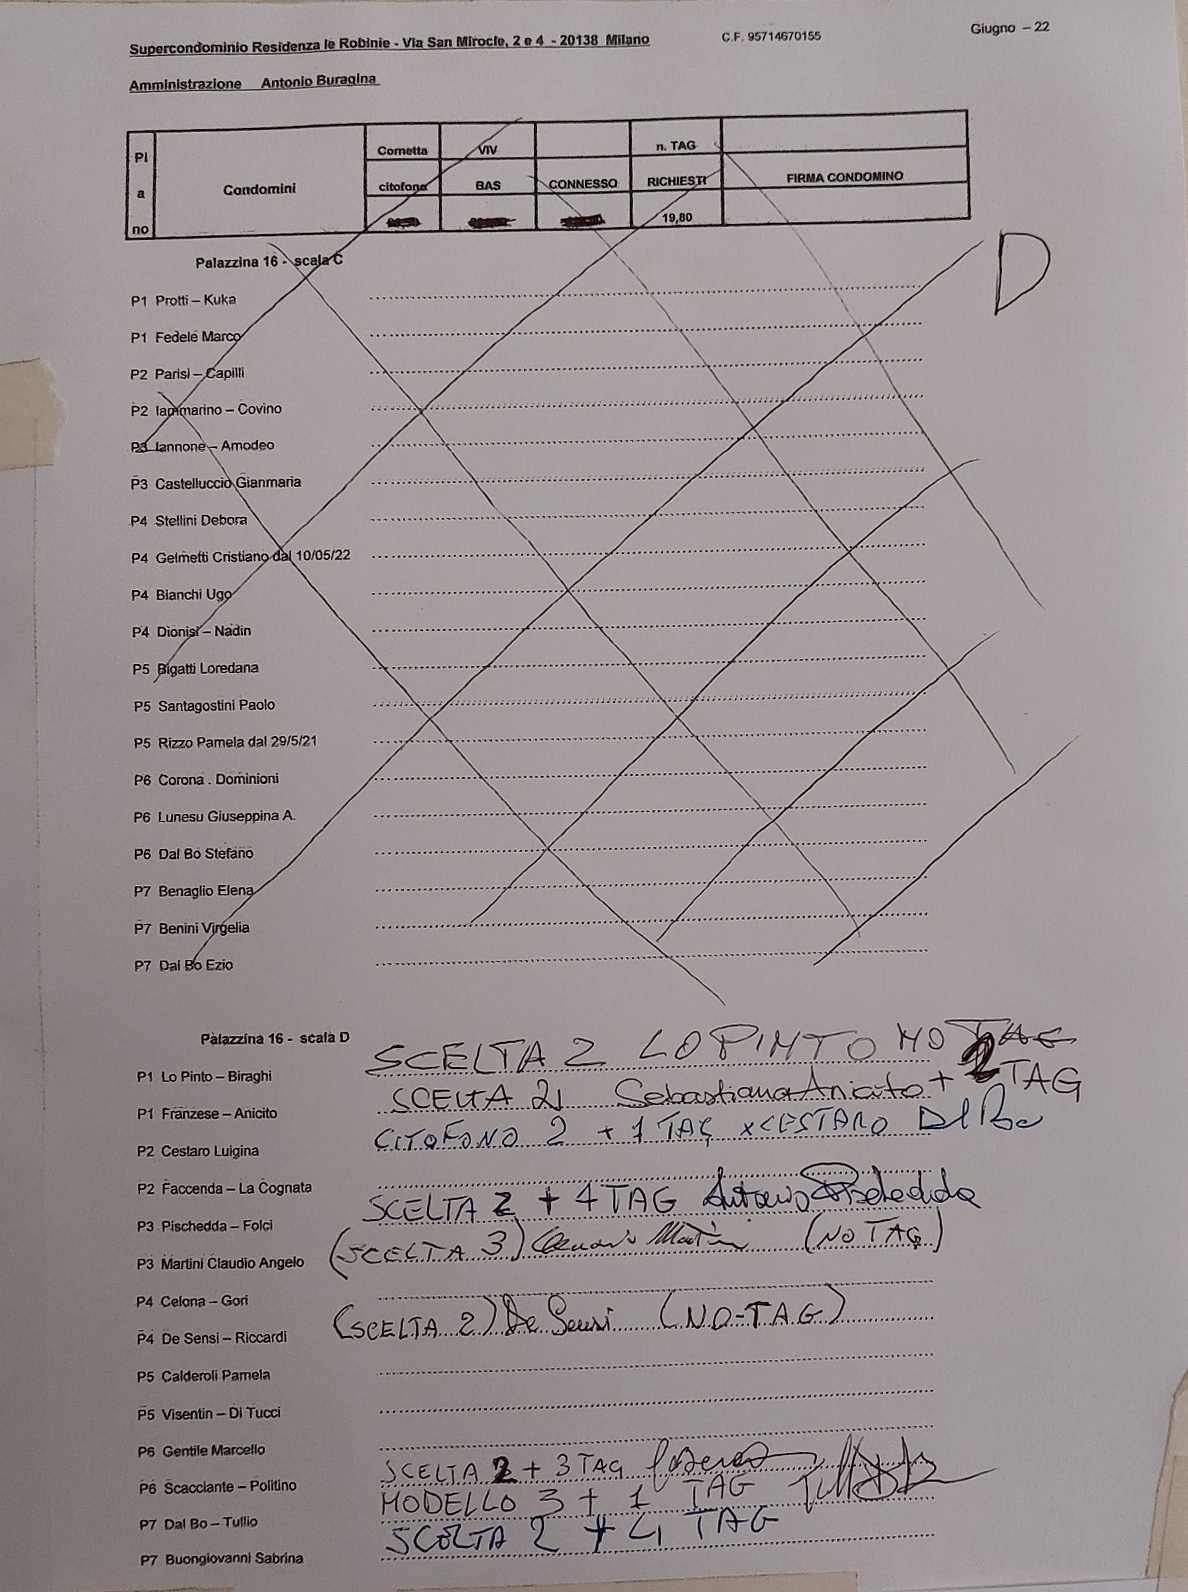 Supercondominio Residenza le Robinie - Via San Mirocle, 2 e 4 - 20138 Milano C.F. 95714670155 Giugno – 22
Amministrazione Antonio Buragina
Pi a no
Condomini
Cornetta citofono
VIV BAS
CONNESSO
n. TAG RICHIESTI 19,80
FIRMA CONDOMINO
D
Palazzina 16 - scala C
P1 Protti – Kuka
P1 Fedele Marco
P2 Parisi – Capilli
P2 Iammarino – Covino
P3 Iannone – Amodeo
P3 Castelluccio Gianmaria
P4 Stellini Debora
P4 Gelmetti Cristiano dal 10/05/22
P4 Bianchi Ugo
P4 Dionisi – Nadin
P5 Bigatti Loredana
P5 Santagostini Paolo
P5 Rizzo Pamela dal 29/5/21
P6 Corona . Dominioni
P6 Lunesu Giuseppina A.
P6 Dal Bo Stefano
P7 Benaglio Elena
P7 Benini Virgelia
P7 Dal Bo Ezio
Palazzina 16 - scala D
P1 Lo Pinto – Biraghi SCELTA 2 LO PINTO NO TAG
P1 Franzese – Anicito SCELTA 2 Sebastiana Anicito + 2 TAG
P2 Cestaro Luigina CITOFONO 2 + 1 TAG x CESTARO
P2 Faccenda – La Cognata
P3 Pischedda – Folci SCELTA 2 + 4 TAG Antonio Pischedda
P3 Martini Claudio Angelo (SCELTA 3) Martini (NO TAG)
P4 Celona – Gori
P4 De Sensi – Riccardi (SCELTA 2) De Sensi (NO-TAG)
P5 Calderoli Pamela
P5 Visentin – Di Tucci
P6 Gentile Marcello
P6 Scacciante – Politino SCELTA 2 + 3 TAG
P7 Dal Bo – Tullio MODELLO 3 + 1 TAG
P7 Buongiovanni Sabrina SCELTA 2 + 4 TAG